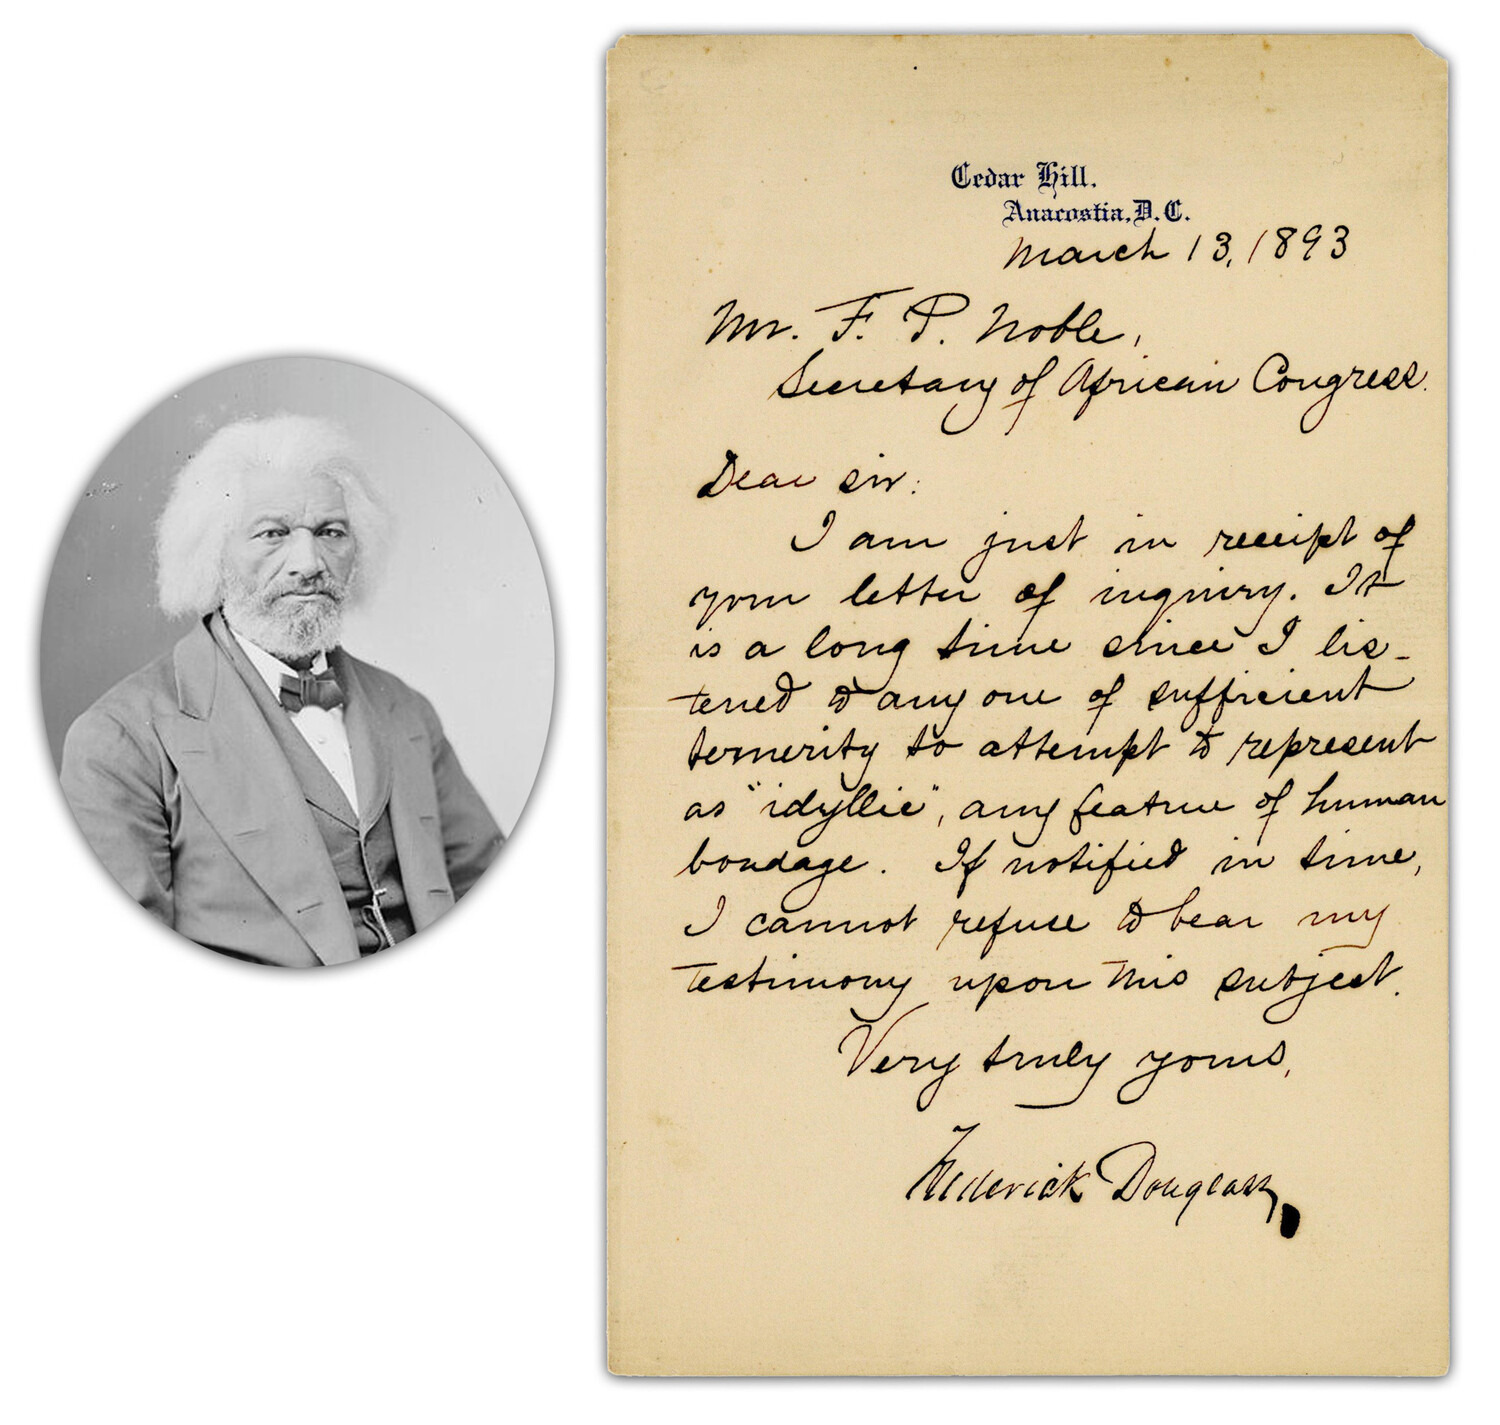 Cedar Hill.
Anacostia, D.C.
March 13, 1893
Mr. F. P. Noble,
Secretary of African Congress.
Dear sir:
I am just in receipt of
your letter of inquiry. It
is a long time since I lis-
tened to any one of sufficient
temerity to attempt to represent
as "idyllic", any feature of human
bondage. If notified in time,
I cannot refuse to bear my
testimony upon this subject.
Very truly yours,
Frederick Douglass